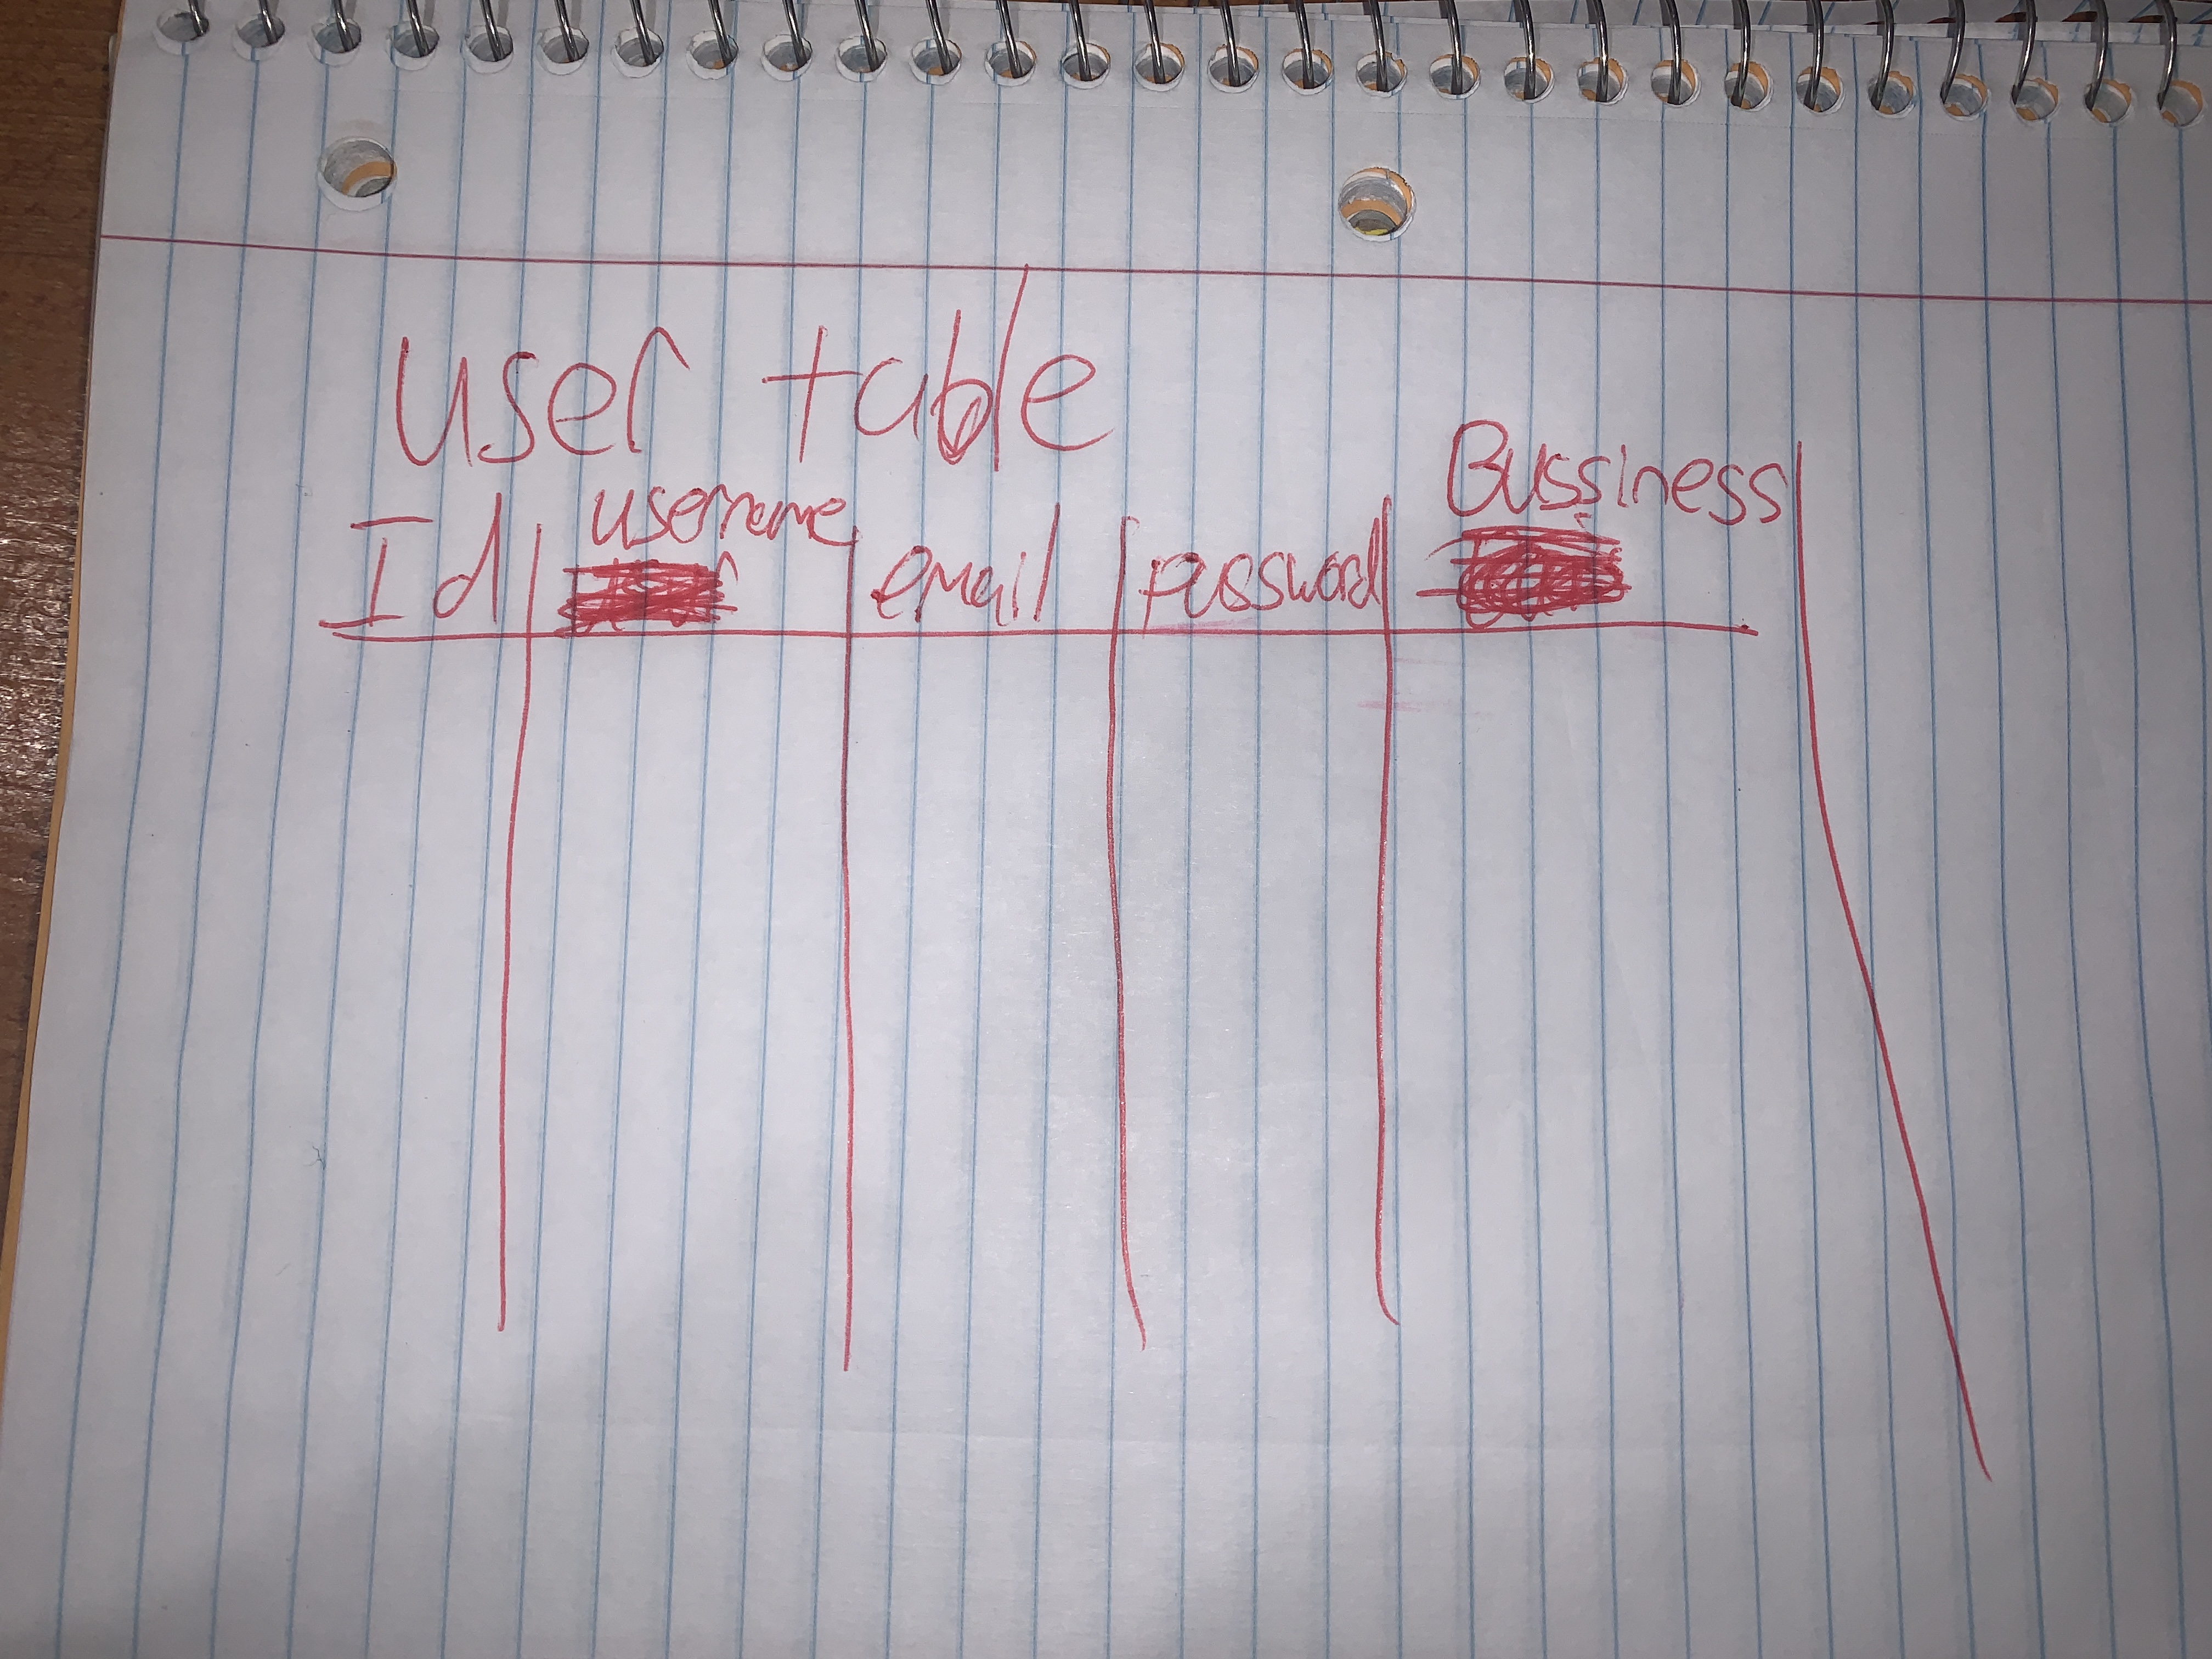 user table
Id username email password Bussiness